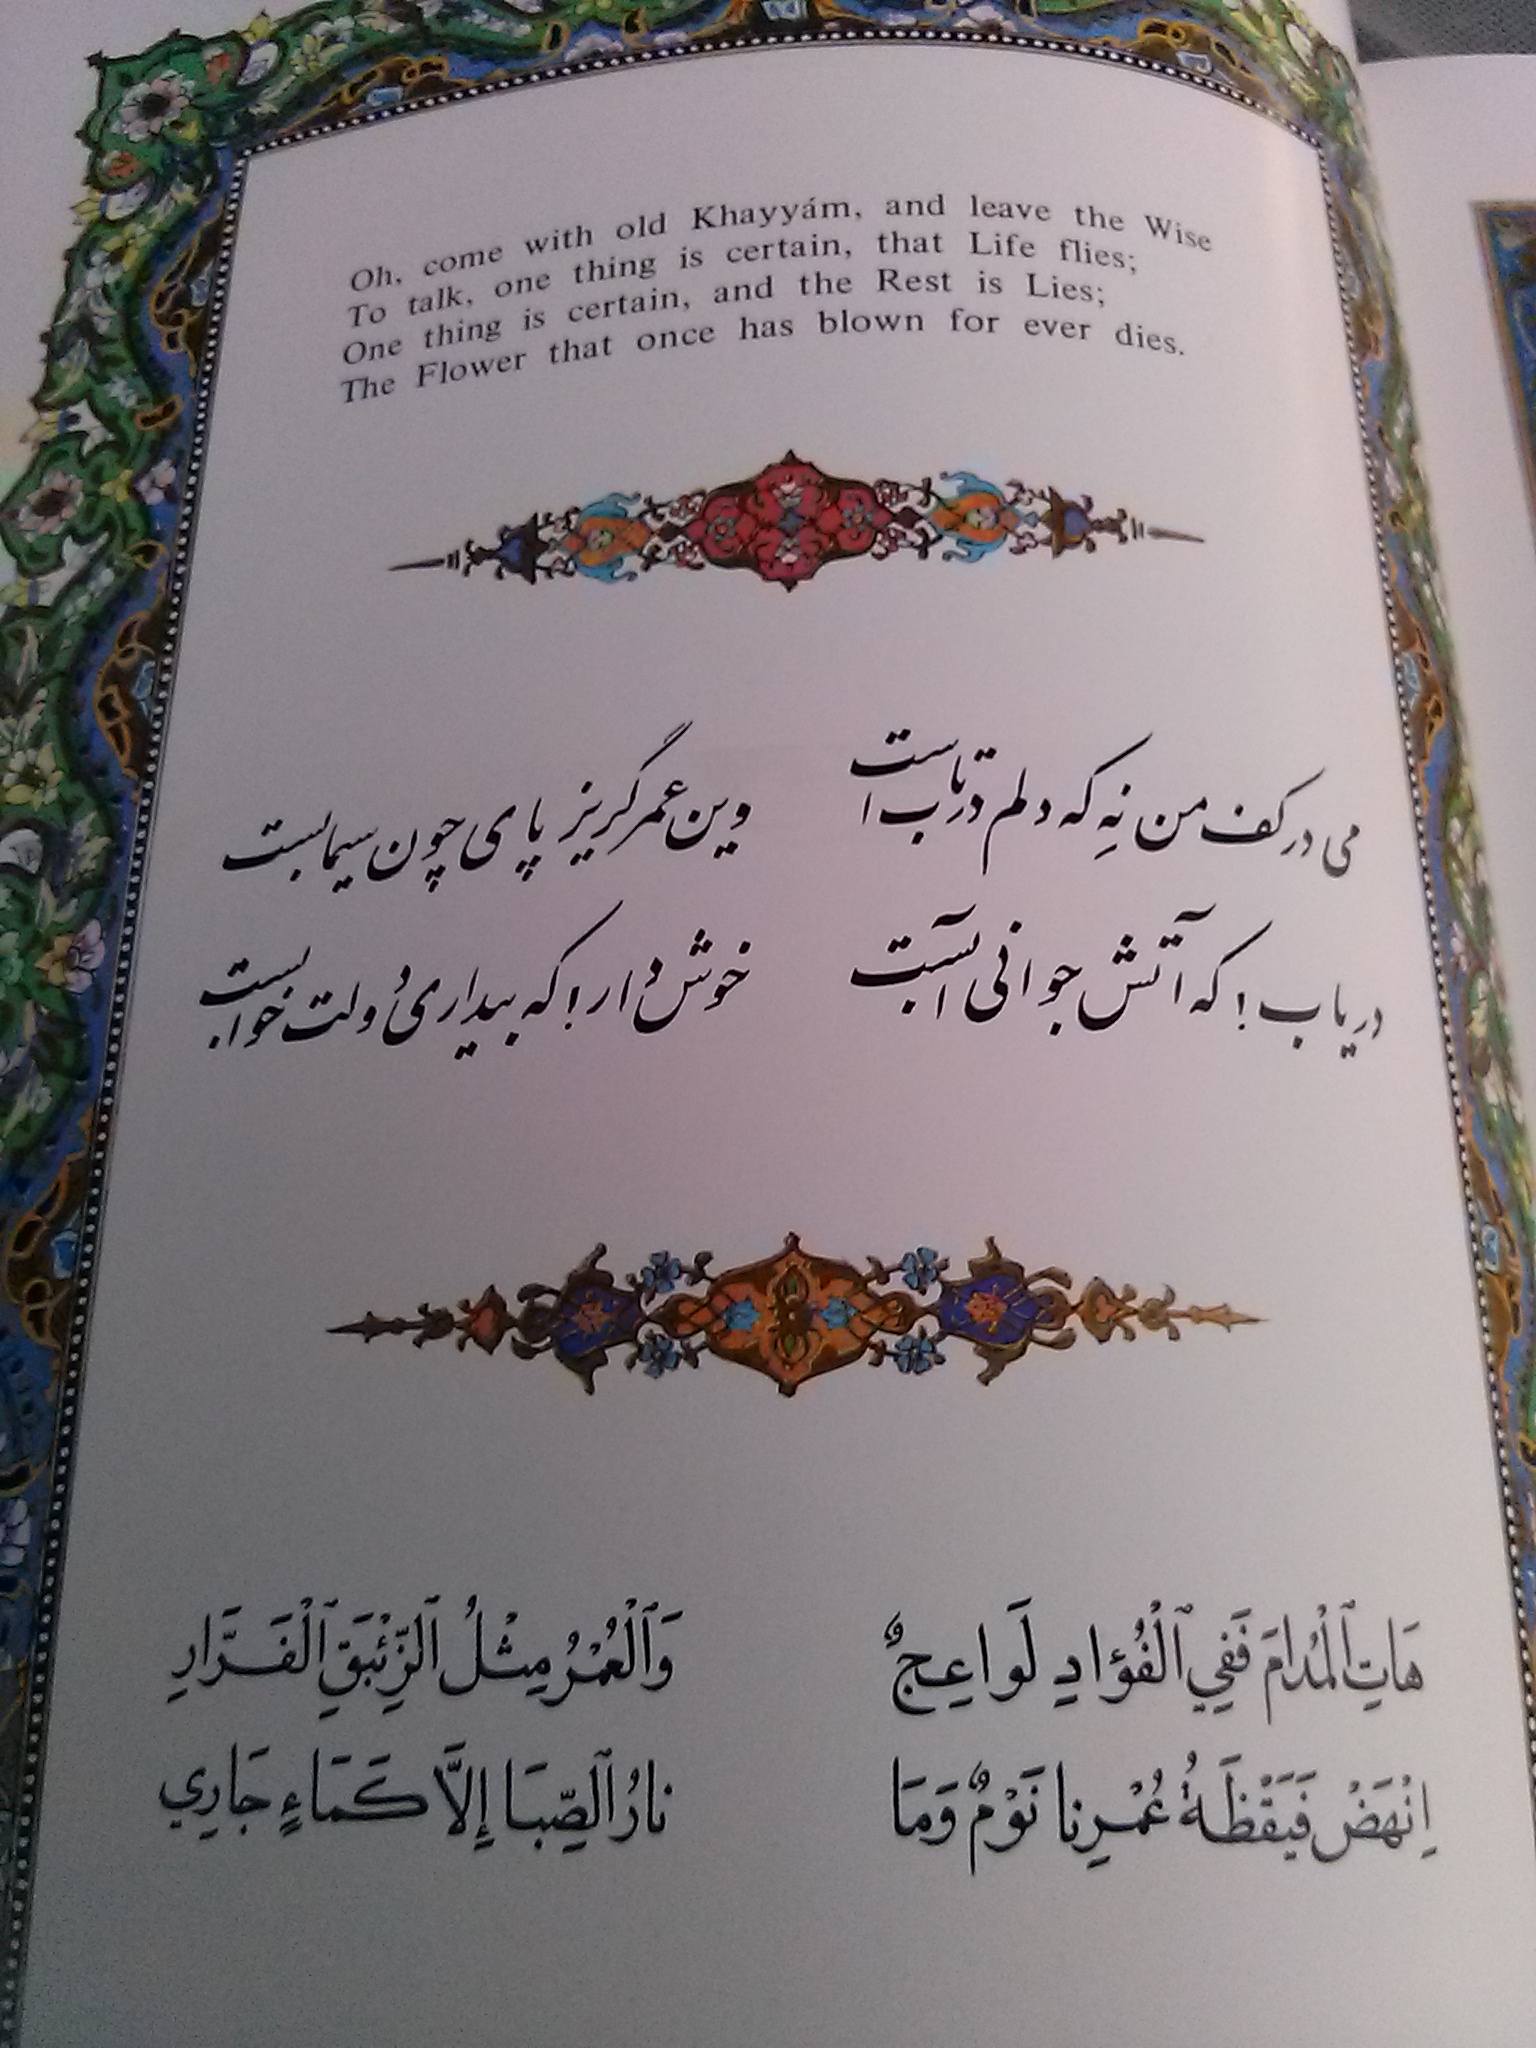 Oh, come with old Khayyám, and leave the Wise
To talk, one thing is certain, that Life flies;
One thing is certain, and the Rest is Lies;
The Flower that once has blown for ever dies.
می در کف من نِه که دلم در تابست وین عمر گریز پای چون سیمابست
دریاب! که آتش جوانی آبست خوش دار! که بیداریُ دولت خوابست
هَاتِ ٱلْمُدامَ فَفِي ٱلْفُؤادِ لَواعِجٌ وَٱلْعُمْرُ مِثْلُ ٱلزِّئْبَقِ ٱلْفَرَّارِ
اِنْهَضْ فَيَقْظَةُ عُمْرِنا نَوْمٌ وَمَا نارُ ٱلصِّبَا إِلاَّ كَمَاءٍ جَارِي